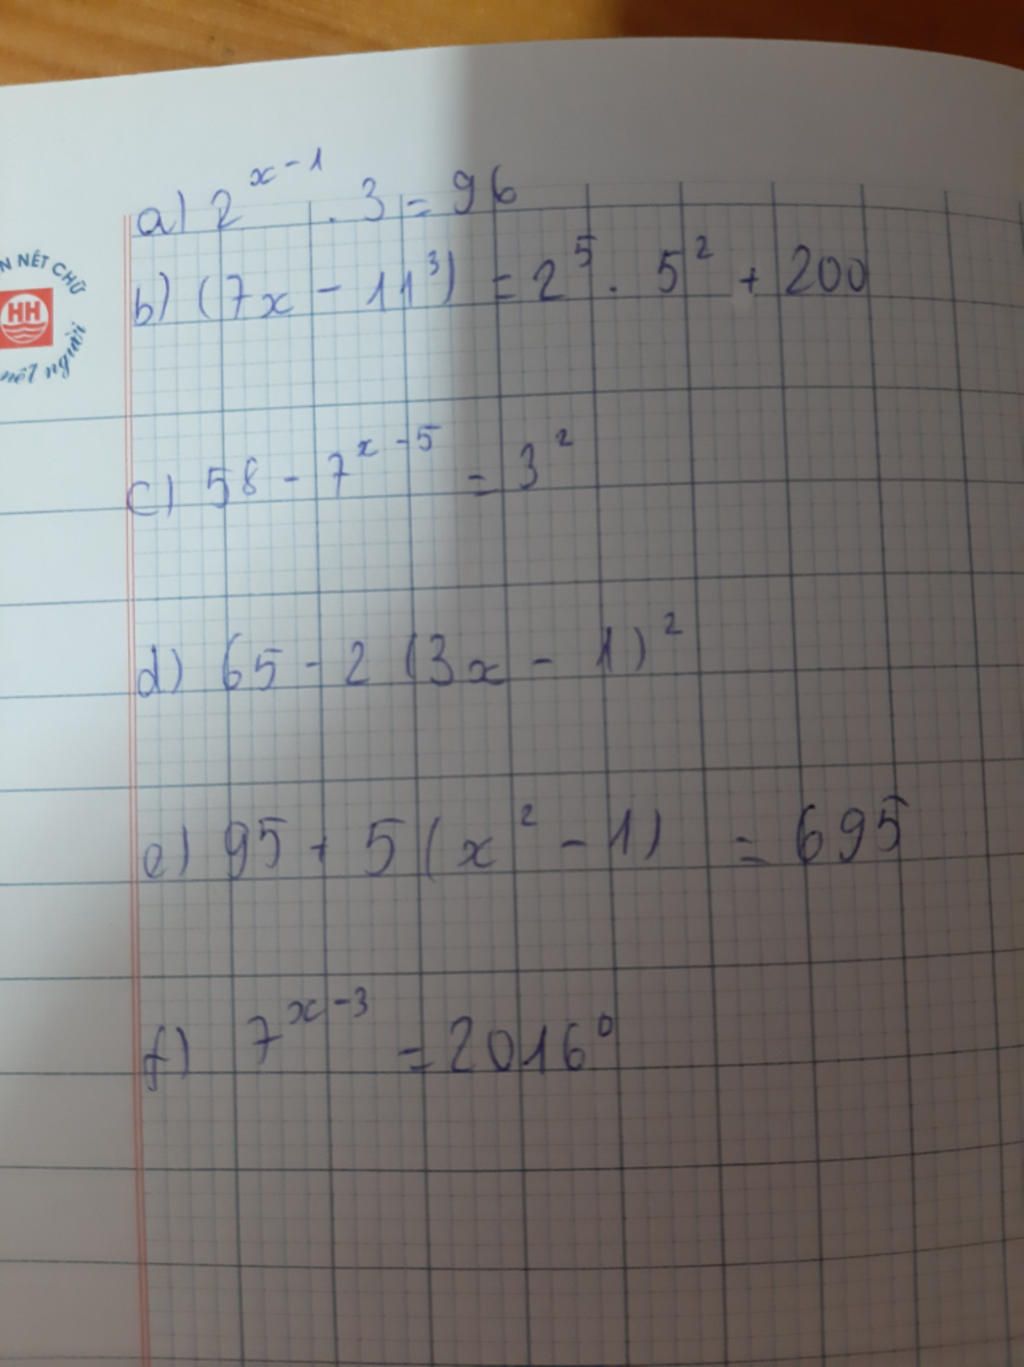 a) 2^{x-1} . 3 = 96
b) (7x - 11^3) = 2^5 . 5^2 + 200
c) 58 - 7^{x-5} = 3^2
d) 65 - 2 (3x - 1)^2
e) 95 + 5 (x^2 - 1) = 695
f) 7^{x-3} = 2016^0
N NÉT CHỮ
HH
nết người